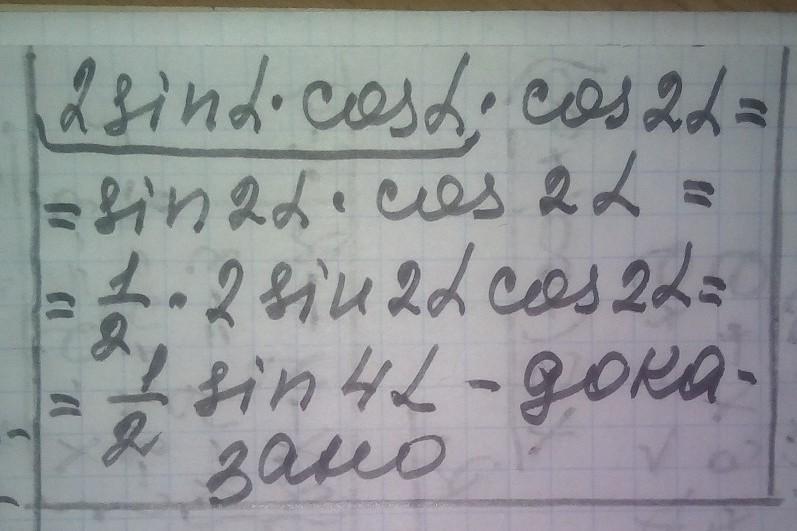 2 sin α · cos α · cos 2α =
= sin 2α · cos 2α =
= 1/2 · 2 sin 2α cos 2α =
= 1/2 sin 4α - дока-
зано